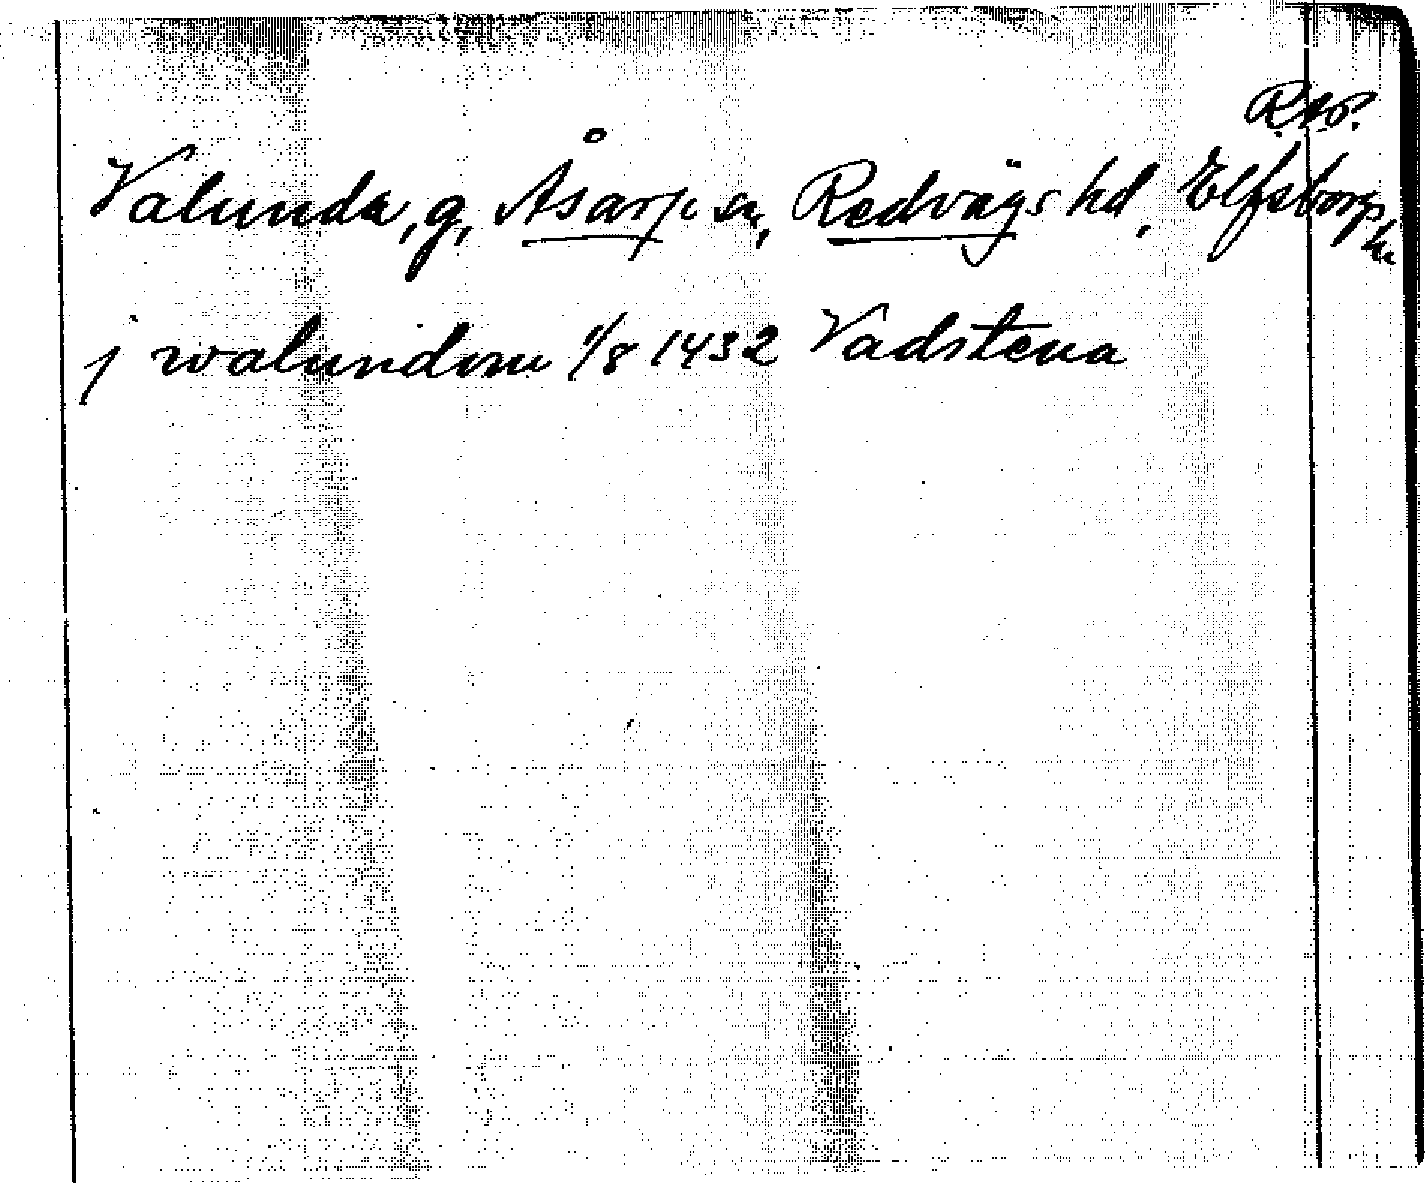 RAP.
Valunda, g, Åsarp sn, Redvägs hd, Elfsborgs ln
j walundom 1/8 1432 Vadstena